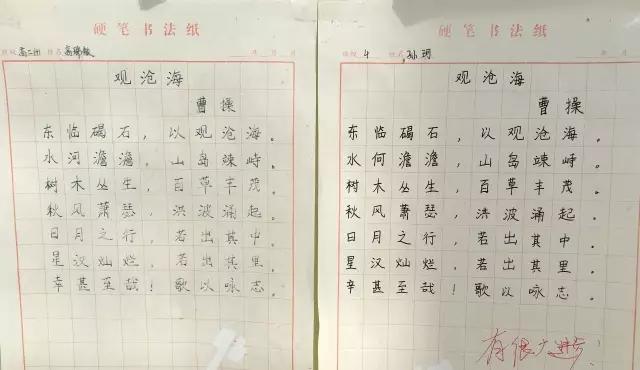 硬笔书法纸
班级 高二 姓名
年 月 日
观沧海
曹操
东临碣石，以观沧海。
水河澹澹，山岛竦峙。
树木丛生，百草丰茂。
秋风萧瑟，洪波涌起。
日月之行，若出其中
星汉灿烂，若出其里。
幸甚至哉！歌以咏志。
硬笔书法纸
班级 4 姓名 孙玥
年 月 日
观沧海
曹操
东临碣石，以观沧海。
水何澹澹，山岛竦峙。
树木丛生，百草丰茂。
秋风萧瑟，洪波涌起。
日月之行，若出其中。
星汉灿烂，若出其里。
幸甚至哉！歌以咏志。
有很大进步